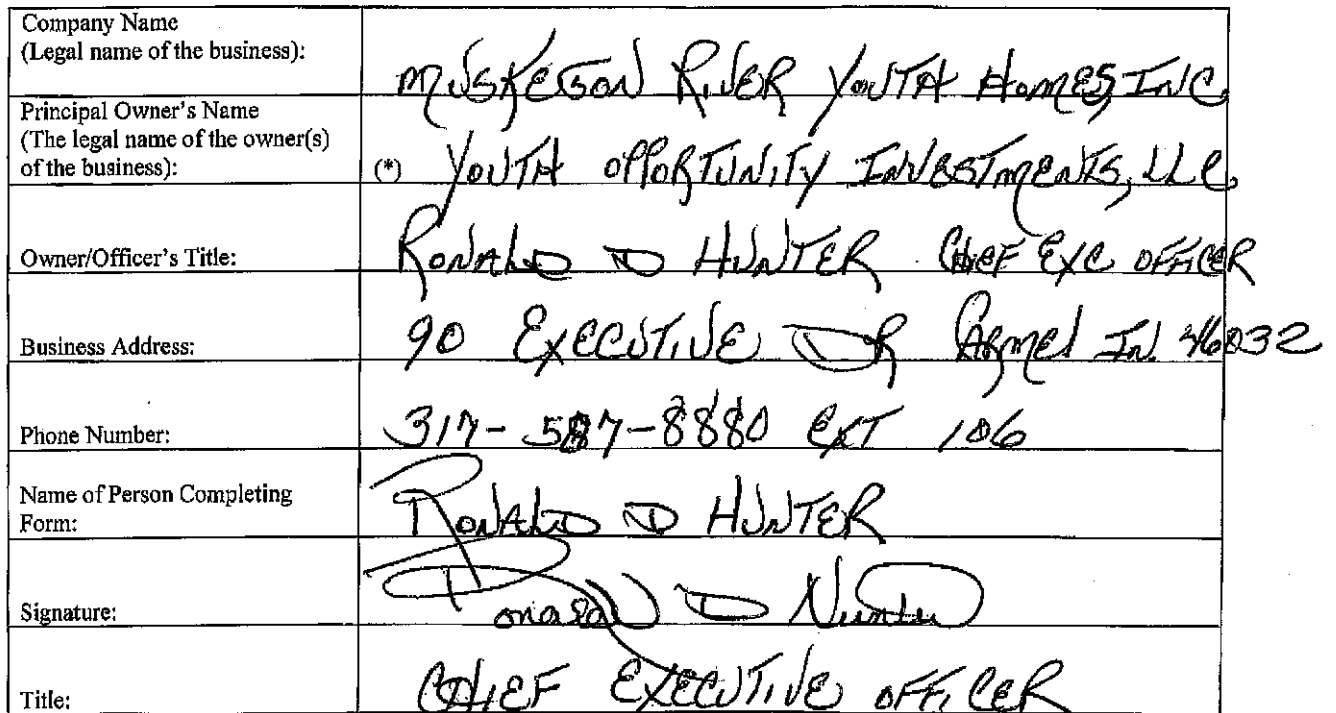 Company Name
(Legal name of the business):
MUSKEGON RIVER YOUTH HOMES, INC
Principal Owner's Name
(The legal name of the owner(s)
of the business):
(*) YOUTH OPPORTUNITY INVESTMENTS, LLC
Owner/Officer's Title:
RONALD D HUNTER CHIEF EXC OFFICER
Business Address:
90 EXECUTIVE DR CARMEL IN. 46032
Phone Number:
317-587-8880 EXT 106
Name of Person Completing
Form:
RONALD D HUNTER
Signature:
Ronald D Hunter
Title:
CHIEF EXECUTIVE OFFICER